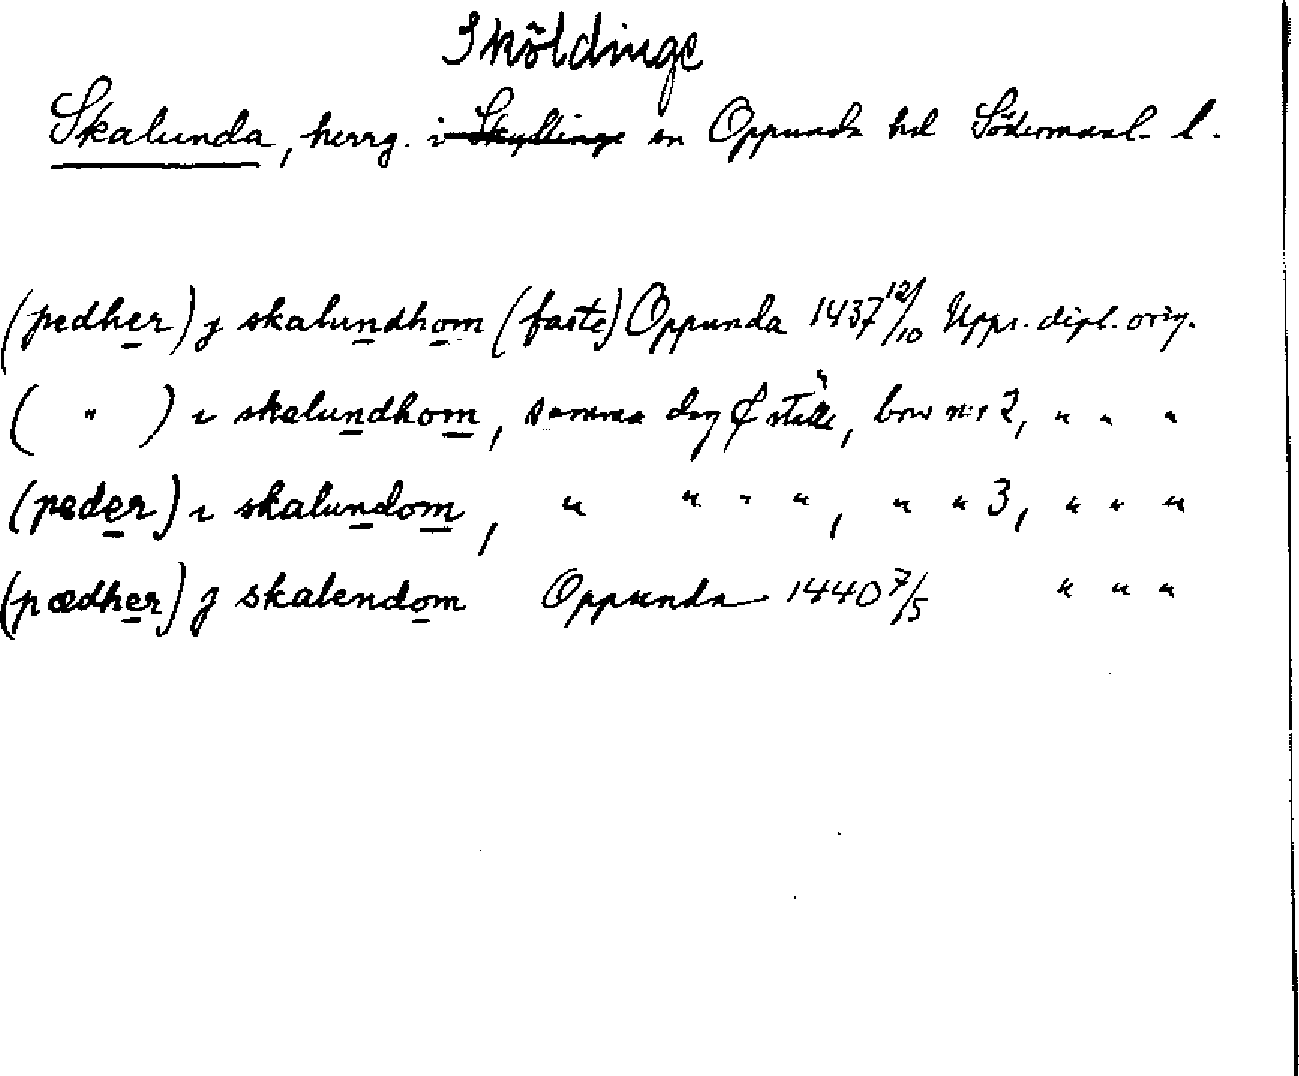 Sköldinge
Skalunda, herrg. i Skyllinge sn Oppunda hd Södermanl. l.
(pedher) j skalundhom (faste) Oppunda 1437 12/10 Upps. dipl. orig.
( " ) i skalundhom, samma dag & ställe, brev nr 2, " " "
(peder) i skalundom, " " " ", " " 3, " " "
(pædher) j skalendom Oppunda 1440 7/5 " " "